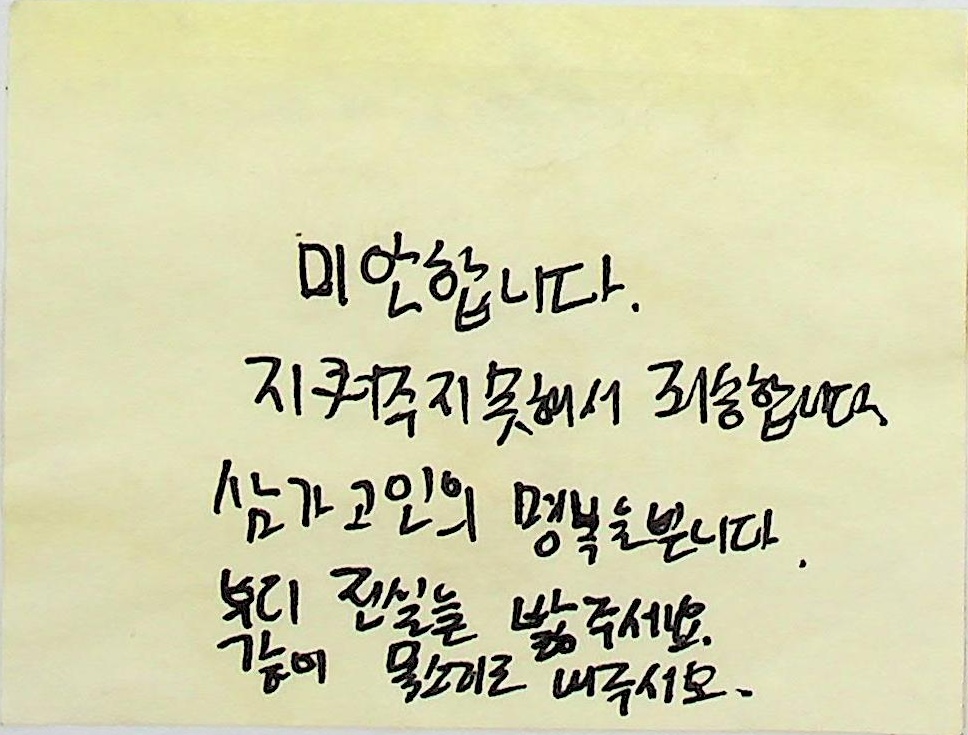 미안합니다.
지켜주지못해서 죄송합니다.
삼가 고인의 명복을 빕니다.
부디 진실을 밝혀주세요.
같이 목소리로 내주시오.